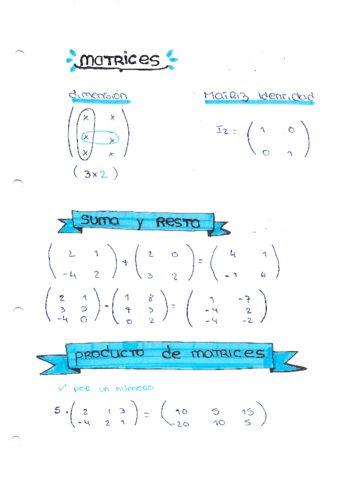 MATRICES
dimensión
Matriz Identidad
( x x
x x
x x )
(3x2)
I2 = ( 1 0
0 1 )
SUMA y RESTA
( 2 1
-4 2 ) + ( 2 0
3 2 ) = ( 4 1
-1 4 )
( 2 1
3 5
-4 0 ) - ( 1 8
7 3
0 2 ) = ( 1 -7
-4 2
-4 -2 )
PRODUCTO de MATRICES
✓ por un número
5 · ( 2 1 3
-4 2 1 ) = ( 10 5 15
-20 10 5 )